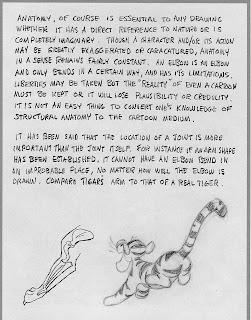 ANATOMY, OF COURSE IS ESSENTIAL TO ANY DRAWING
WHETHER IT HAS A DIRECT REFERENCE TO NATURE OR IS
COMPLETELY IMAGINARY. THOUGH A CHARACTER AND/OR ITS ACTION
MAY BE GREATLY EXAGGERATED OR CARACATURED, ANATOMY
IN A SENSE REMAINS FAIRLY CONSTANT. AN ELBOW IS AN ELBOW
AND ONLY BENDS IN A CERTAIN WAY, AND HAS ITS LIMITATIONS.
LIBERTIES MAY BE TAKEN BUT THE "REALITY" OF EVEN A CARTOON
MUST BE KEPT OR IT WILL LOSE PLAUSIBILITY OR CREDILITY.
IT IS NOT AN EASY THING TO CONVERT ONE'S KNOWLEDGE OF
STRUCTURAL ANATOMY TO THE CARTOON MEDIUM.
IT HAS BEEN SAID THAT THE LOCATION OF A JOINT IS MORE
IMPORTANT THAN THE JOINT ITSELF. FOR INSTANCE IF AN ARM SHAPE
HAS BEEN ESTABLISHED, IT CANNOT HAVE AN ELBOW BEND IN
AN IMPROBABLE PLACE, NO MATTER HOW WELL THE ELBOW IS
DRAWN. COMPARE TIGARS ARM TO THAT OF A REAL TIGER.